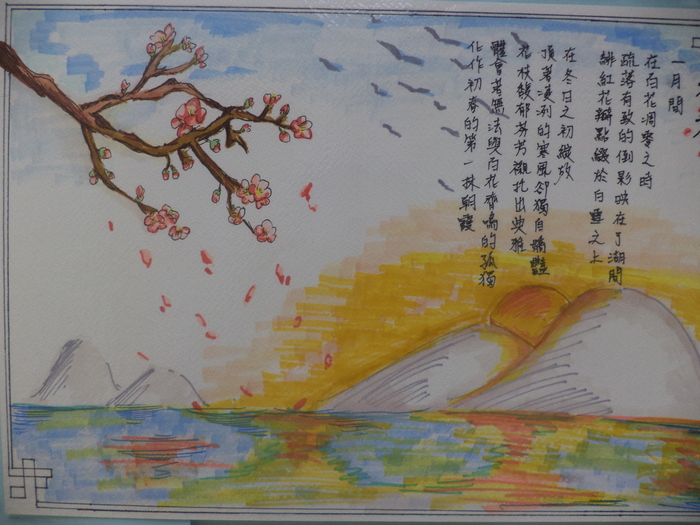 一月間
在百花凋零之時
疏落有致的倒影映在了湖間
緋紅花瓣點綴於白雪之上
在冬日之初綻放
頂著凜冽的寒風卻獨自嬌豔
花枝馥郁芬芳襯托出典雅
體會著無法與百花齊鳴的孤獨
化作初春的第一抹朝霞